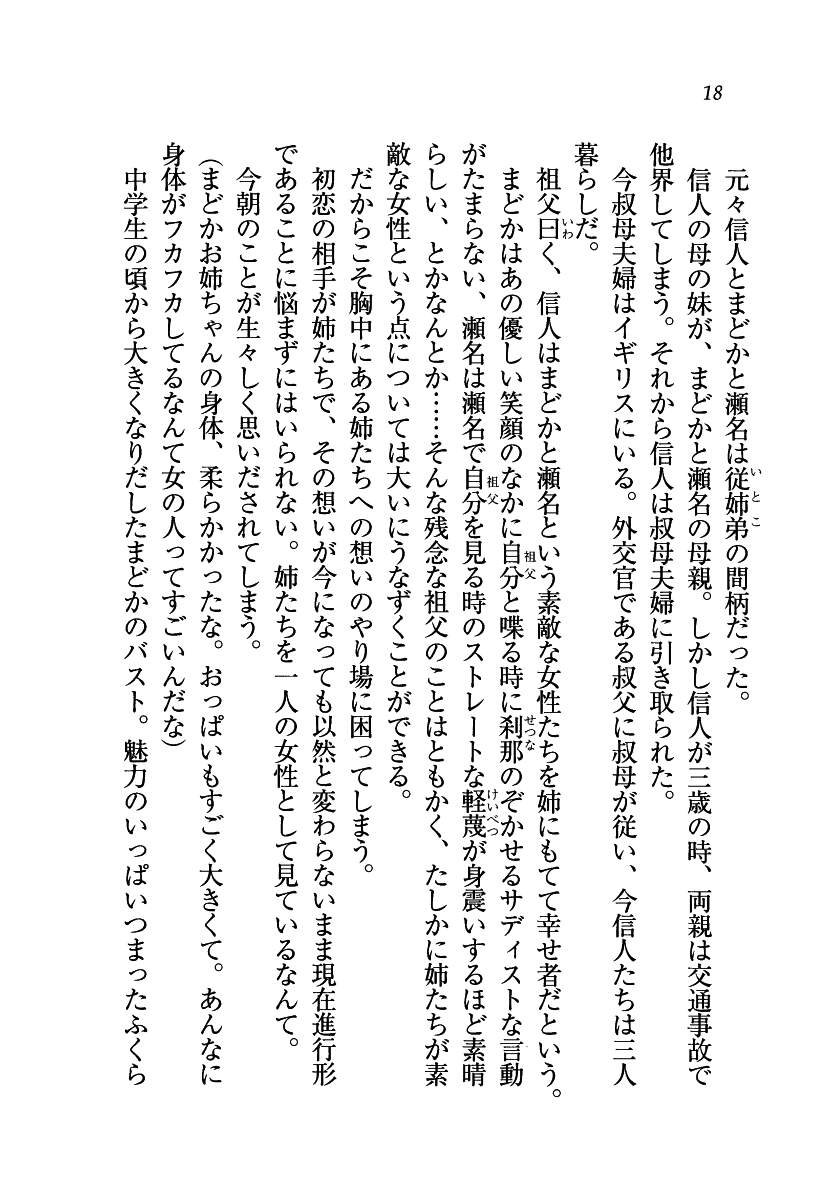 18
元々信人とまどかと瀬名は従姉弟の間柄だった。
信人の母の妹が、まどかと瀬名の母親。しかし信人が三歳の時、両親は交通事故で
他界してしまう。それから信人は叔母夫婦に引き取られた。
今叔母夫婦はイギリスにいる。外交官である叔父に叔母が従い、今信人たちは三人
暮らしだ。
祖父曰く、信人はまどかと瀬名という素敵な女性たちを姉にもてて幸せ者だという。
まどかはあの優しい笑顔のなかに自分と喋る時に刹那のぞかせるサディストな言動
がたまらない、瀬名は瀬名で自分を見る時のストレートな軽蔑が身震いするほど素晴
らしい、とかなんとか……そんな残念な祖父のことはともかく、たしかに姉たちが素
敵な女性という点については大いにうなずくことができる。
だからこそ胸中にある姉たちへの想いのやり場に困ってしまう。
初恋の相手が姉たちで、その想いが今になっても以然と変わらないまま現在進行形
であることに悩まずにはいられない。姉たちを一人の女性として見ているなんて。
今朝のことが生々しく思いだされてしまう。
(まどかお姉ちゃんの身体、柔らかかったな。おっぱいもすごく大きくて。あんなに
身体がフカフカしてるなんて女の人ってすごいんだな)
中学生の頃から大きくなりだしたまどかのバスト。魅力のいっぱいつまったふくら